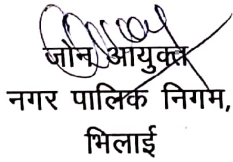 जोन आयुक्त
नगर पालिक निगम,
भिलाई